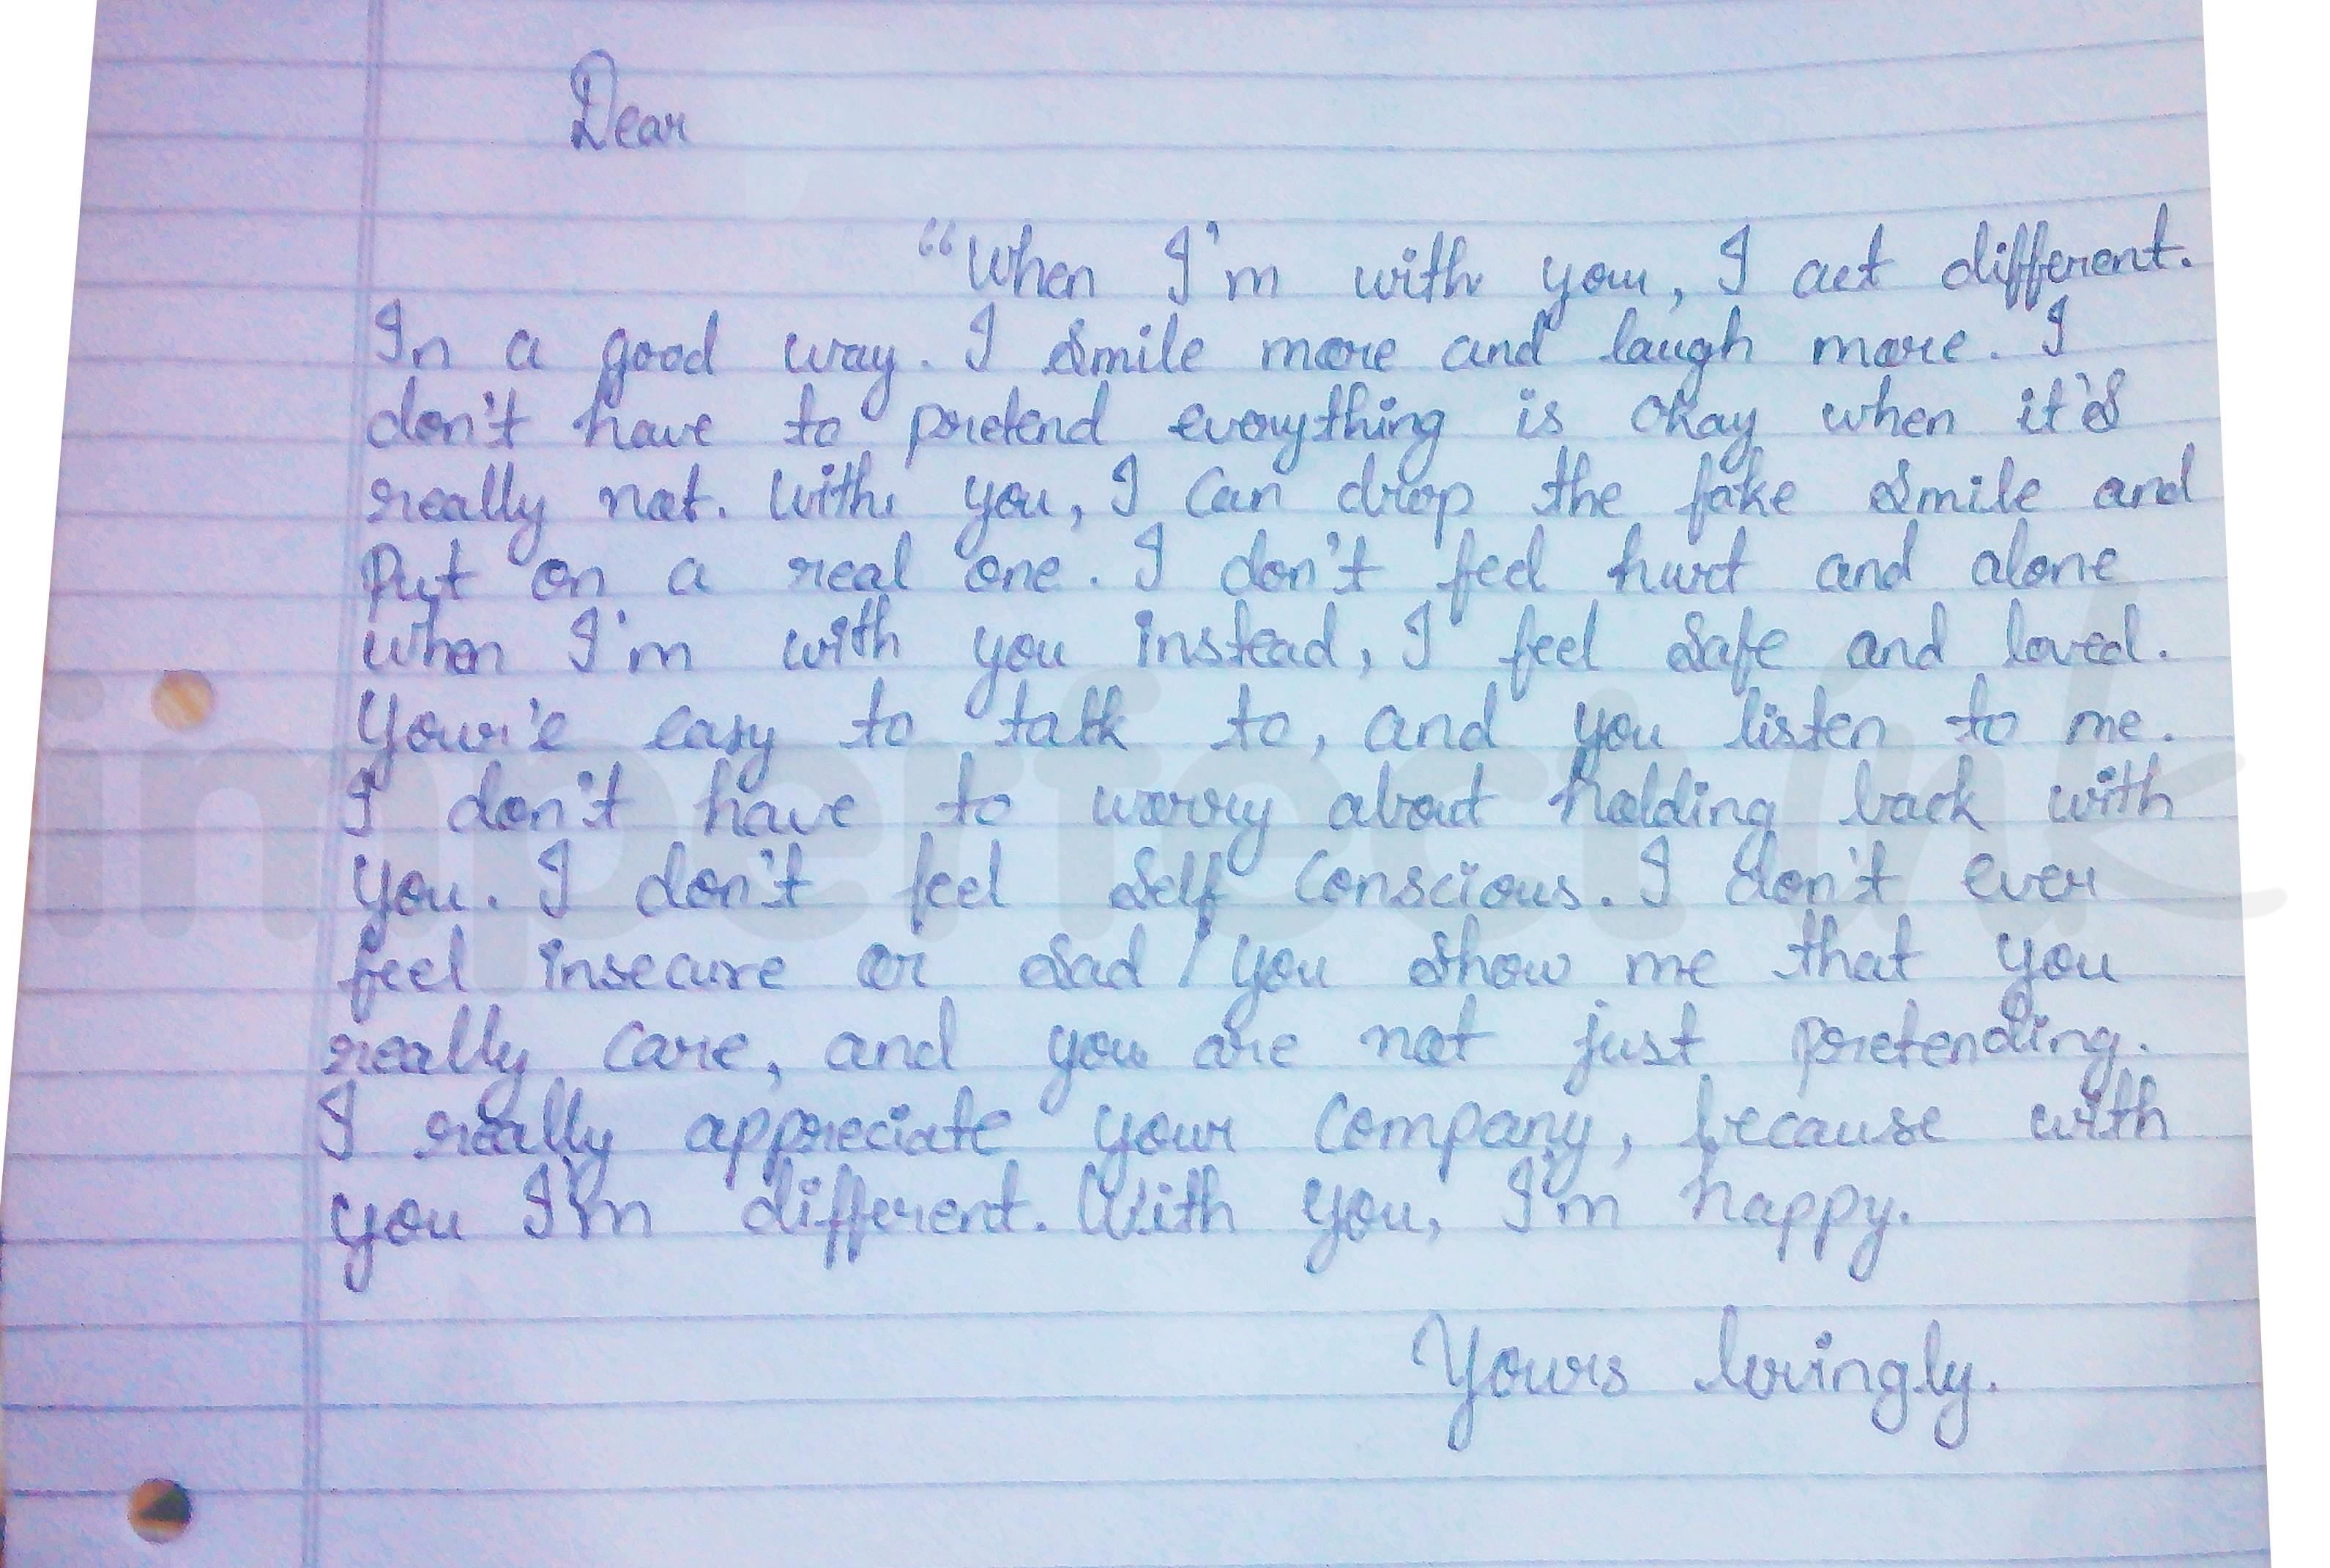 Dear
“When I'm with you, I act different.
In a good way. I smile more and laugh more. I
don't have to pretend everything is okay when it's
really not. With you, I can drop the fake smile and
Put on a real one. I don't feel hurt and alone
when I'm with you instead, I feel safe and loved.
Your'e easy to talk to, and you listen to me.
I don't have to worry about holding back with
you. I don't feel self conscious. I don't ever
feel insecure or sad / you show me that you
really care, and you are not just pretending.
I really appreciate your company, because with
you I'm different. With you, I'm happy.
Yours lovingly.
imperfect ink